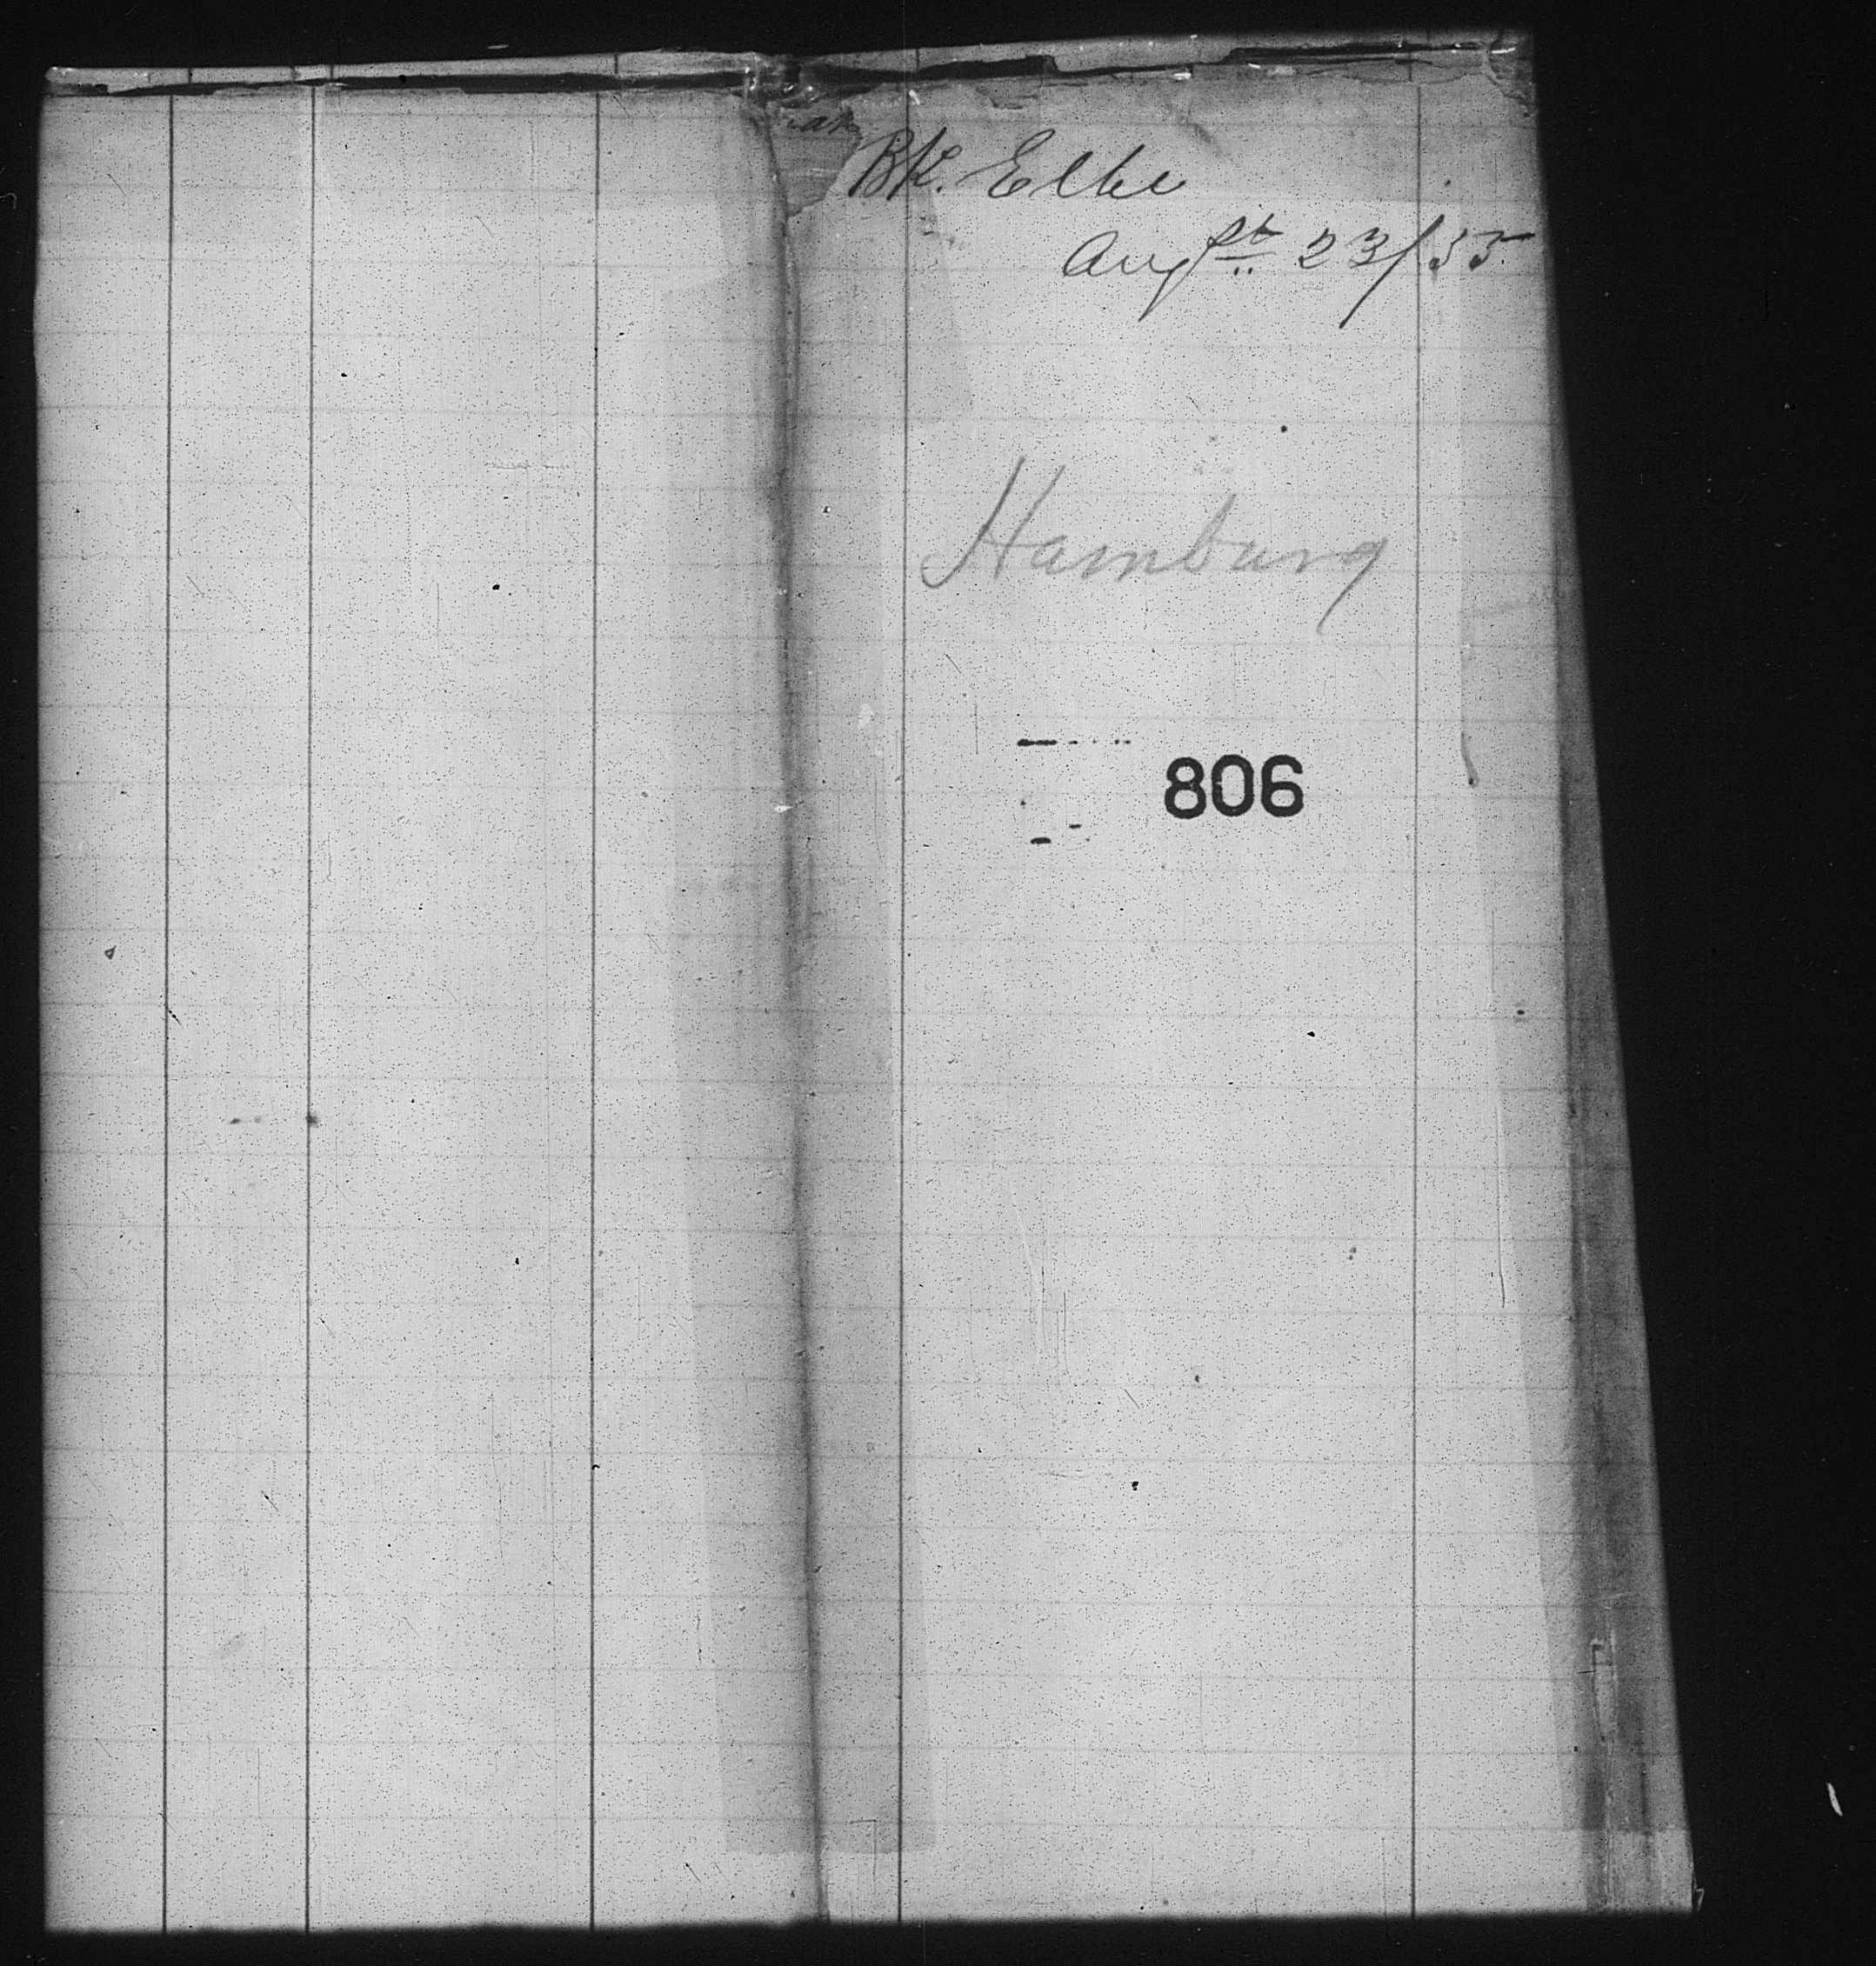 Bk. Elbe
Augst 23/55
Hamburg
806